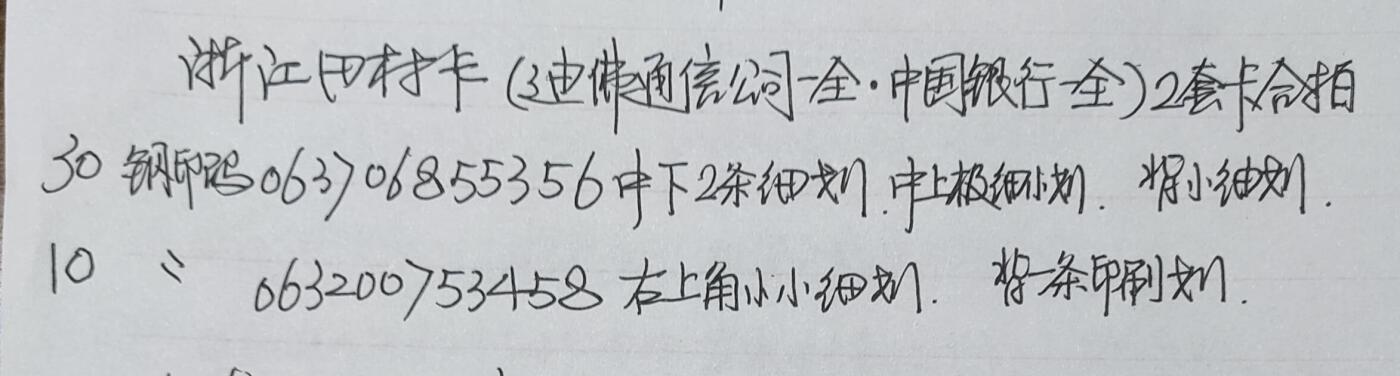 浙江田村卡(迪佛通信公司一全·中国银行一全)2套卡合拍
30 钢印码063706855356中下2条细划.中上极细小划. 背小细划.
10 〃 063200753458右上角小小细划. 背一条印刷划.